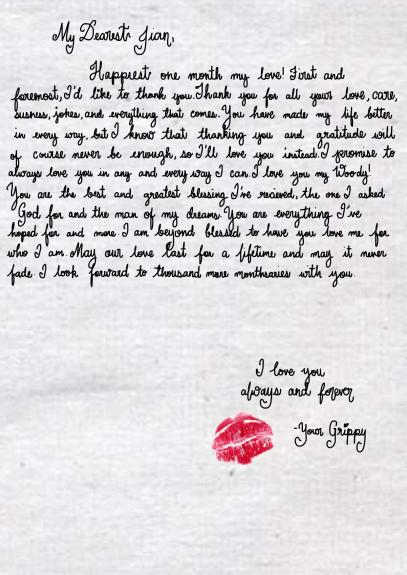 My Dearest Jian,
Happiest one month my love! First and
foremost, I'd like to thank you. Thank you for all your love, care,
susness, jokes, and everything that comes. You have made my life better
in every way, but I know that thanking you and gratitude will
of course never be enough, so I'll love you instead. I promise to
always love you in any and every way I can. I love you my Woody!
You are the best and greatest blessing I've recieved, the one I asked
God for and the man of my dreams. You are everything I've
hoped for and more. I am beyond blessed to have you love me for
who I am. May our love last for a lifetime and may it never
fade. I look forward to thousand more monthsaries with you.
I love you
always and forever
-Your Grippy